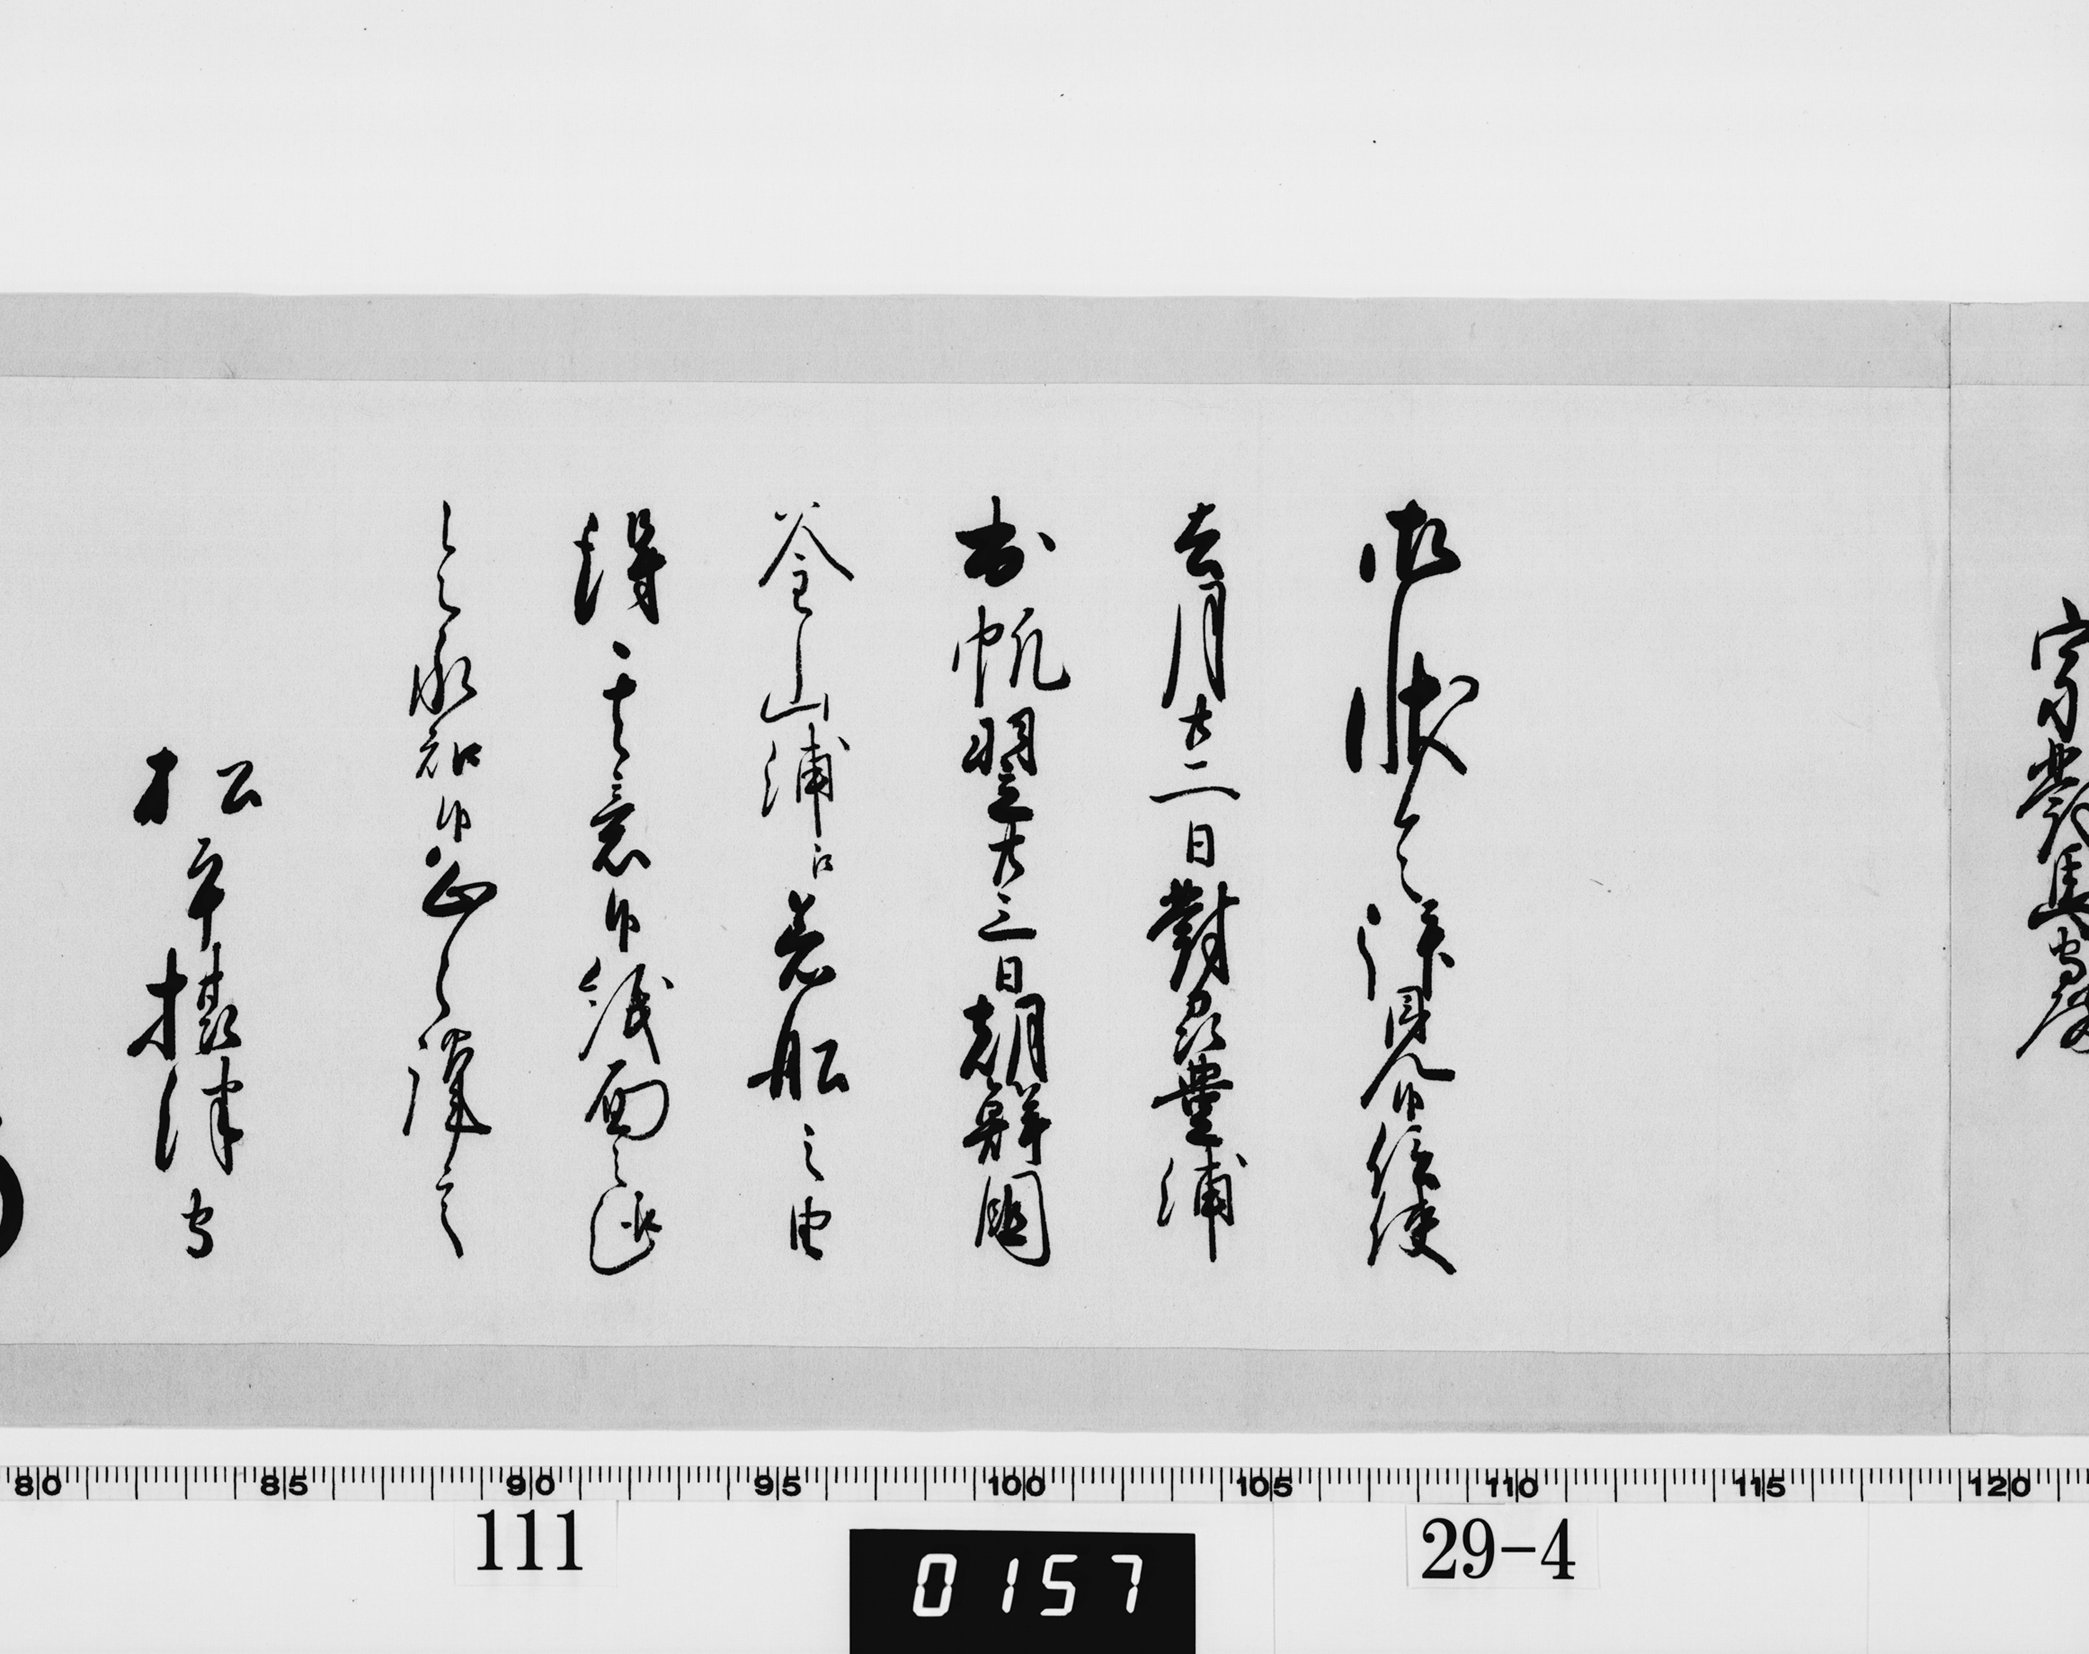 宗對馬守殿
御状令拝見候信使
去月廿二日對州豊浦
出帆翌廿三日朝鮮国
釜山浦江着船之由
得其意候紙面之趣
令承知候恐々謹言
松平攝津守
80 85 90 95 100 105 110 115 120
111
0157
29-4